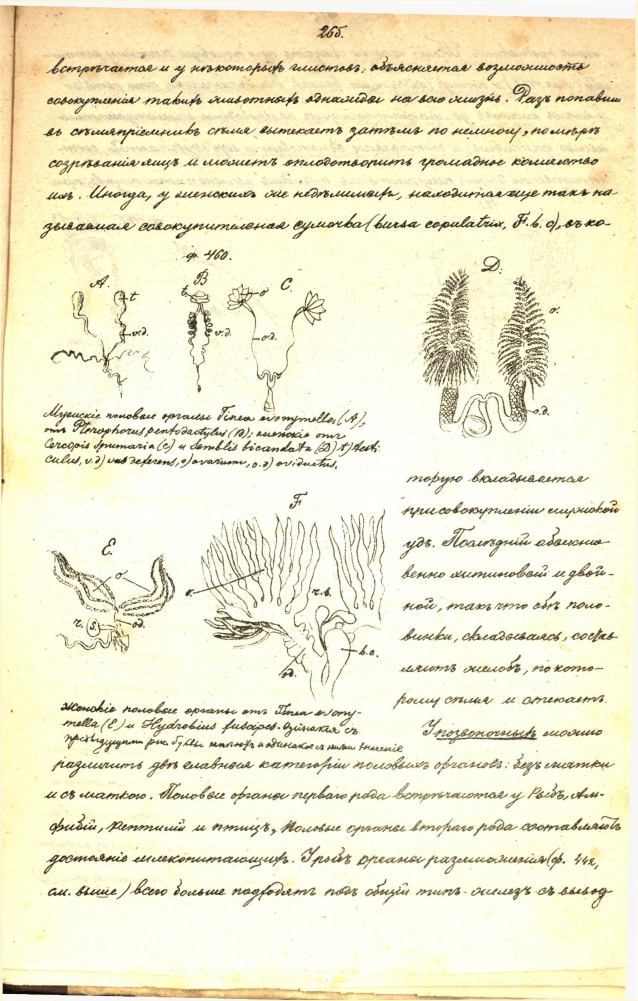 265.
встрѣчается и у нѣкоторыхъ глистовъ, объясняется возможность
совокупленія такихъ животныхъ однажды на всю жизнь. Разъ попавши
въ сѣмяпріемникъ сѣмя вытекаетъ затѣмъ по немногу, по мѣрѣ
созрѣванія яицъ и можетъ оплодотворить громадное количество
ихъ. Иногда, у женскихъ же недѣлимыхъ, находится еще такъ на-
зываемая совокупительная сумочка (bursa copulatrix, F. b. c), въ ко-
ф. 460.
A. B C. D.
t t. o o.
v.d. v.d. o.d. o.d.
Мужскіе половые органы Tinea evonymella, (A),
отъ Pterophorus pentodactylus (B); женскіе отъ
Cercopis spumaria (C) и Semblis bicaudata (D) t) testi-
culus, v.d) vas deferens, o) ovarium, o.d) oviductus.
торую вкладывается
при совокупленіи мужской
удъ. Послѣдній обыкно-
венно хитиновый и двой-
ной, такъ что обѣ поло-
винки, складываясь, состав-
ляютъ желобъ, по кото-
рому сѣмя и стекаетъ.
E. F
o. o. r.s. b.c.
r. s. od. od.
Женскіе половые органы отъ Tinea evony-
mella (E) и Hydrobius fuscipes. Одинакія съ
предыдущимъ рис. буквы имѣютъ и одинакое съ ними значеніе
У позвоночныхъ можно
различить двѣ главныя категоріи половыхъ органовъ: безъ матки
и съ маткою. Половые органы перваго рода встрѣчаются у Рыбъ, Ам-
фибій, Рептилій и птицъ, половые органы втораго рода составляютъ
достояніе млекопитающихъ. У рыбъ органы размноженія (ф. 442,
см. выше) всего больше подходятъ подъ общій типъ желез съ вывод